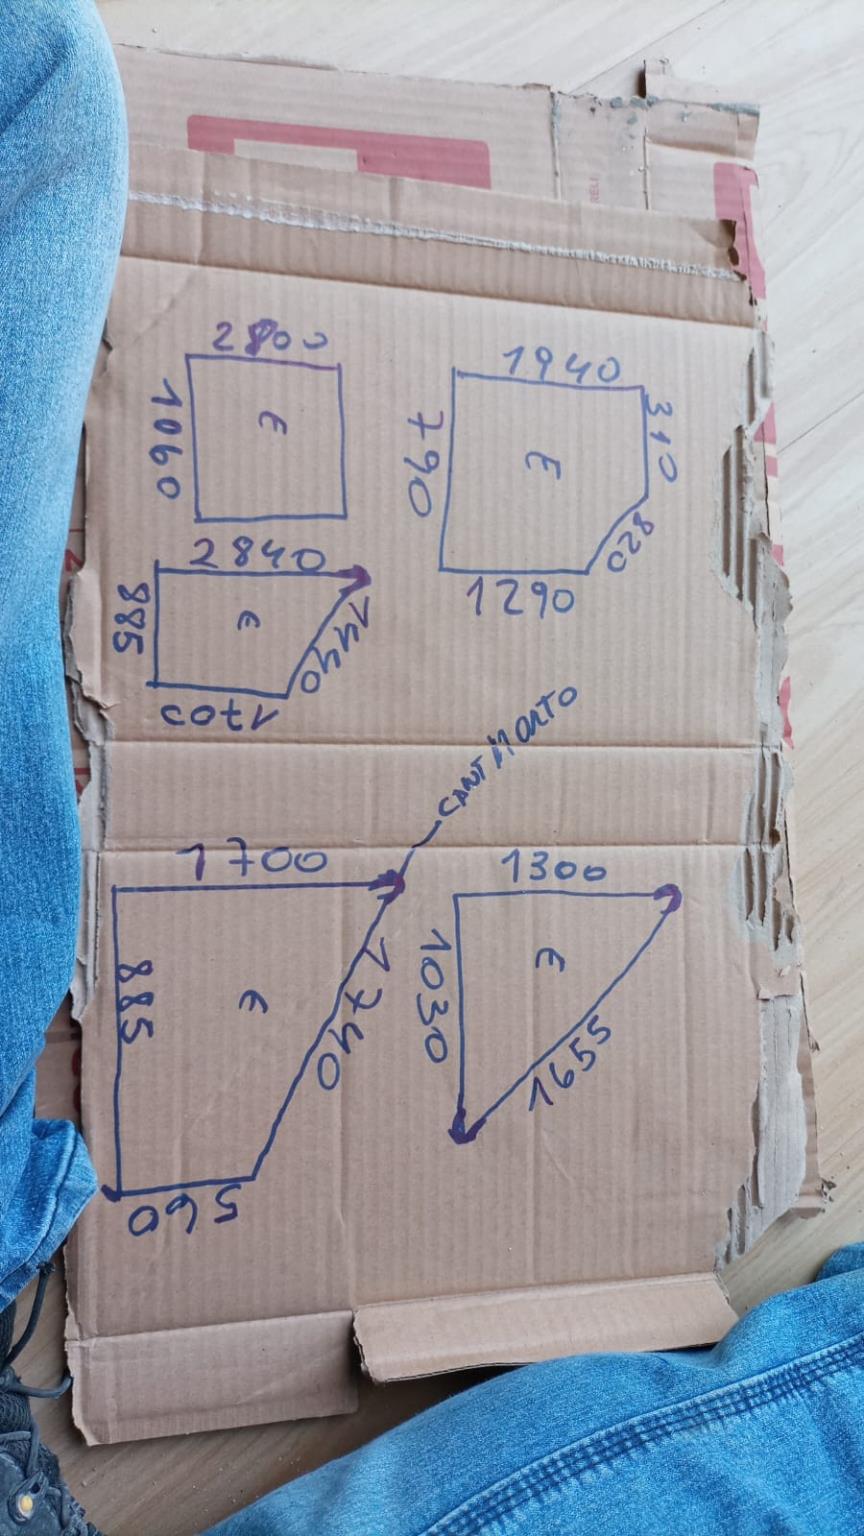 2800
1060
E
1940
310
790
E
820
1290
2840
885
E
1440
1700
CANT MORTO
1700
885
E
1740
560
1300
1030
E
1655